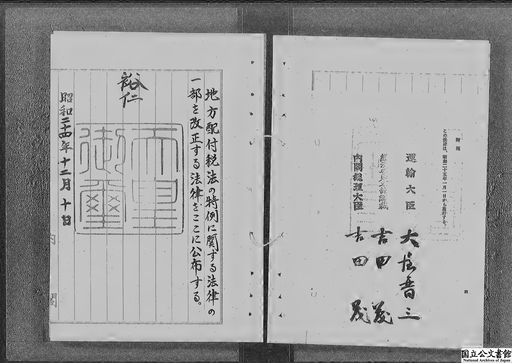 附則
この法律は、昭和二十五年一月一日から施行する。
運輸大臣 大屋晋三
吉田茂
内閣総理大臣 吉田茂
地方配付税法の特例に関する法律の
一部を改正する法律をここに公布する。
裕仁
天皇御璽
昭和二十四年十二月十日
内閣
国立公文書館
National Archives of Japan